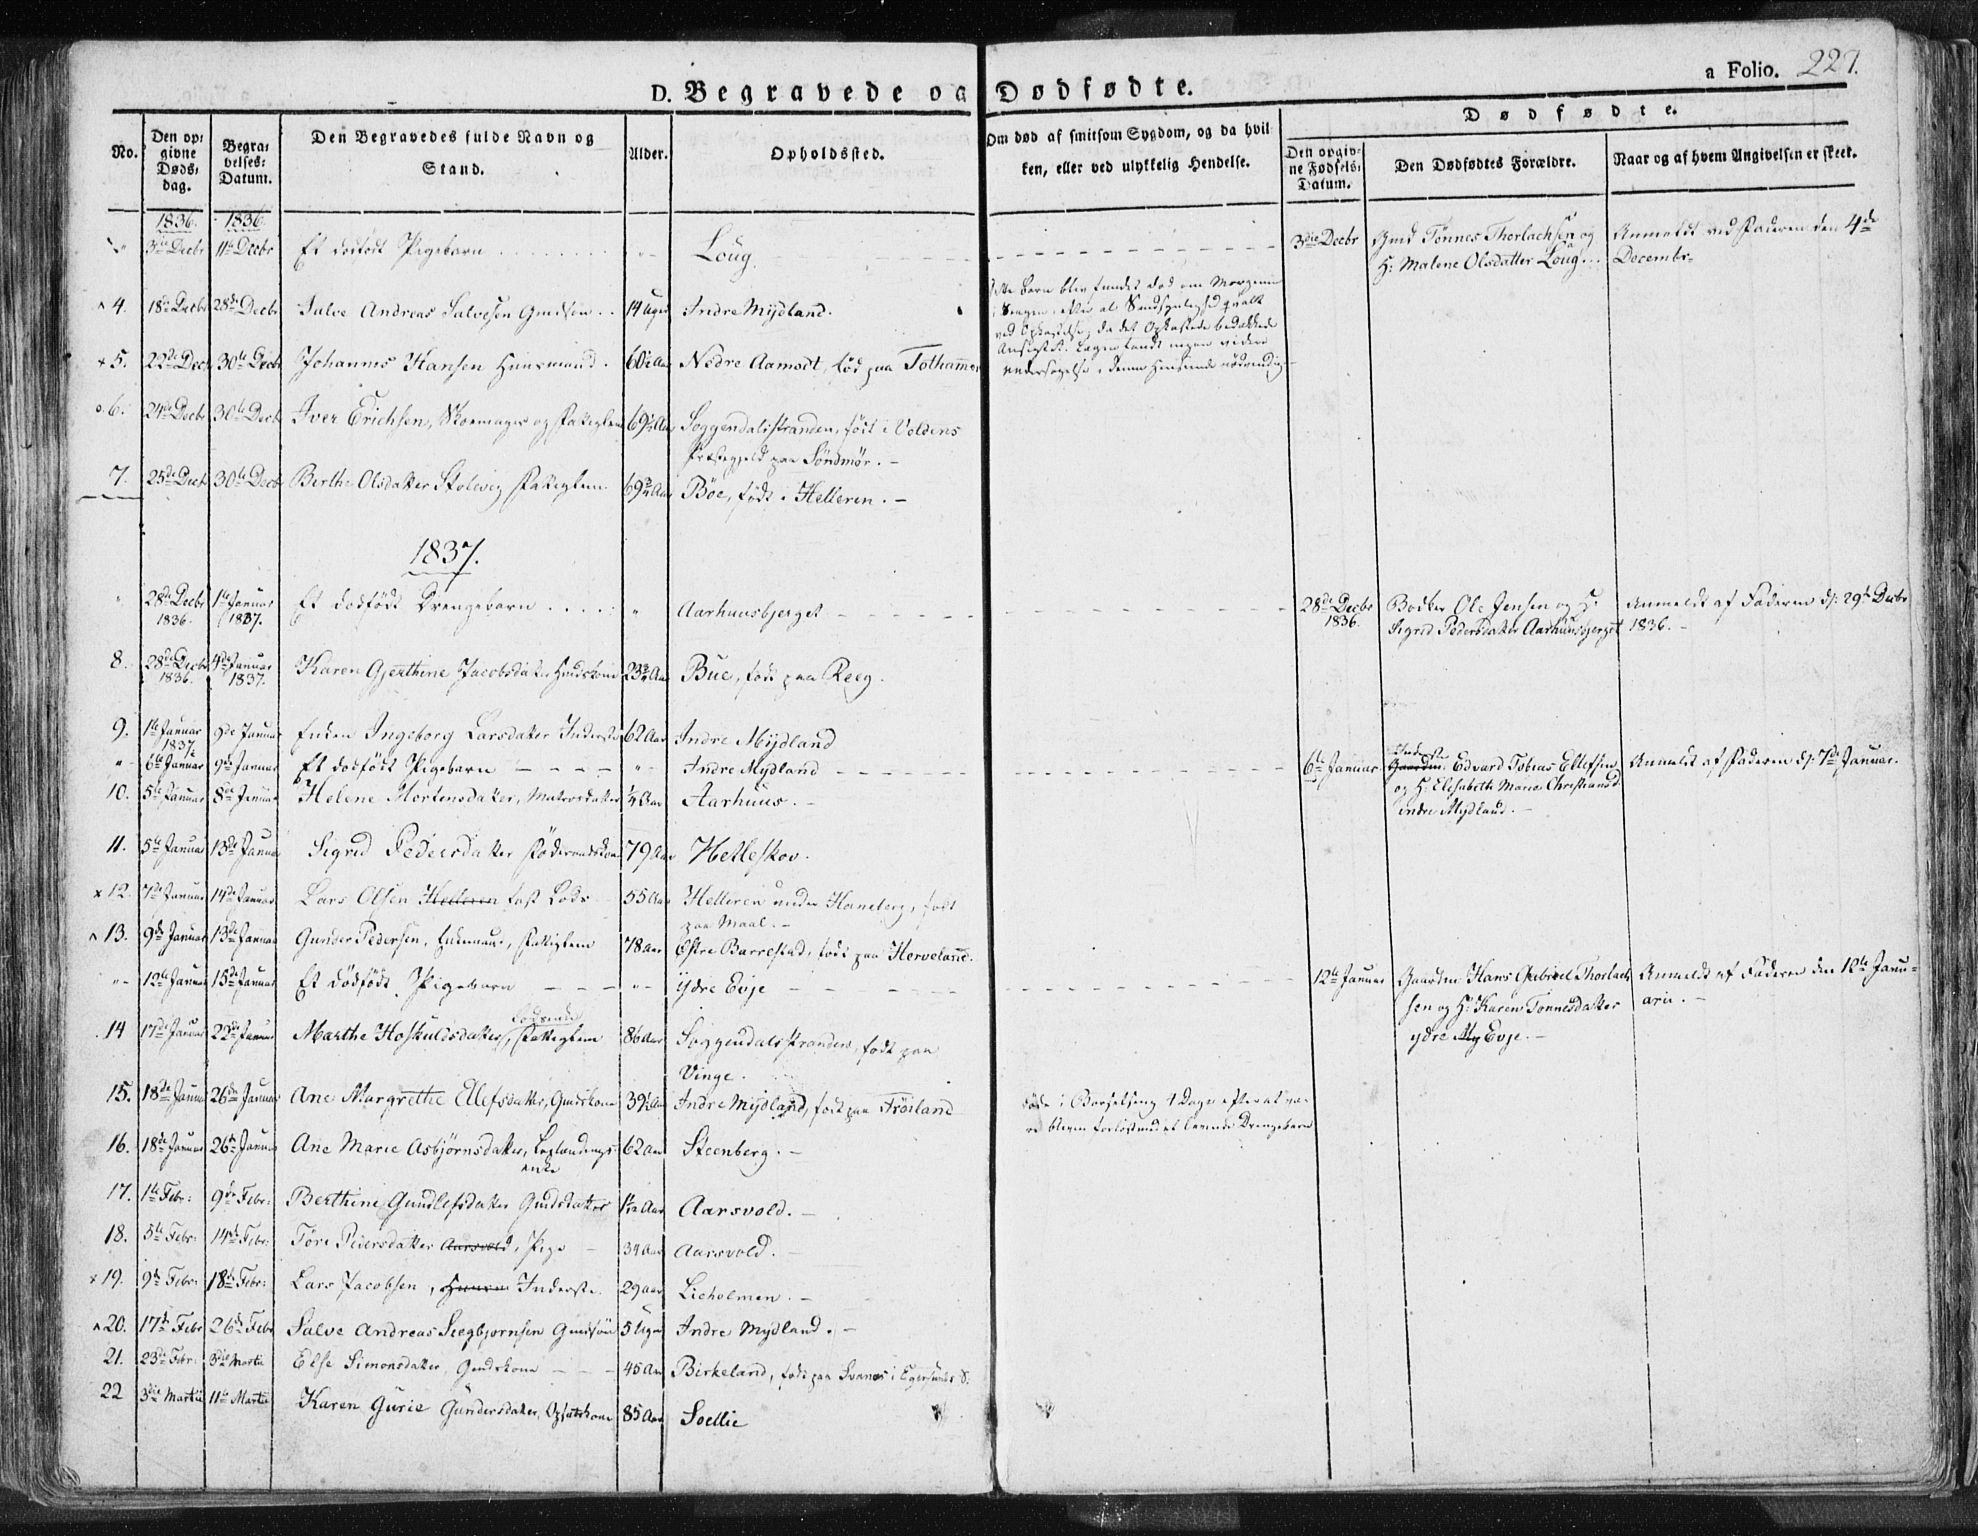 a Folio. 227.
D. Begravede og Dødfødte.
No.
Den op-
givne
Døds-
dag.
Begra-
velses-
Datum.
Den Begravedes fulde Navn og
Stand.
Alder.
Opholdssted.
Om død af smitsom Sygdom, og da hvil-
ken, eller ved ulykkelig Hendelse.
Dødfødte.
Den opgiv-
ne Fødsels-
Datum.
Den Dødfødtes Forældre.
Naar og af hvem Angivelsen er skeet.
1836. 1836.
3die Decbr 11te Decbr Et dødfødt Pigebarn Loug. 3die Decbr Gmd Tønnes Thorlachsen og Anmeldt ved Faderen den 4de
H: Malene Olsdatter Loug. Decembr.
4. 18de Decbr 28de Decbr Salve Andreas Salvesen Gmdsøn 14 Uger Indre Mydland.
Dette Barn blev fundet død om Morgenen
i Sengen, efter al Sandsynlighed qvalt
ved Opkastelse, da det Opkastede bedækkede
Ansigtet. Lægen fandt ingen videre
undersøgelse i denne Henseende nödvendig.
5. 22de Decbr 30te Decbr Johannes Hansen Huusmand. 60 Aar Nedre Aamodt, fød paa Tothammer
6. 24de Decbr 30te Decbr Iver Erichsen, Skoemager og Fattiglem 69½ Aar Soggendalsstranden, født i Voldens
Præstegjeld paa Söndmör.
7. 25de Decbr 30te Decbr Berthe Olsdatter Skolevig Fattiglem 69¾ Aar Böe, født i Helleren.
1837.
28de Decbr 1te Januar Et dødfødt Drengebarn Aarhuusbjerget 28de Decbr Bødker Ole Jensen og H. Anmeldt af Faderen d: 29de Decbr
1836. 1837. 1836. Sigrid Pedersdatter Aarhuusbjerget 1836.
8. 28de Decbr 4de Januar Karen Gjerthine Jacobsdatter Gmdskone 23¾ Aar Bue, født paa Reeg.
1836. 1837.
9. 1te Januar 9de Januar Enken Ingeborg Larsdatter Inderste 62 Aar Indre Mydland
1837.
6te Januar 9de Januar Et dødfødt Pigebarn Indre Mydland 6te Januar Inderste Gaardm. Edvard Tobias Ellefsen Anmeldt af Faderen d: 7de Januar.
og H: Elisabeth Marie Christiansd
indre Mydland.
10. 5te Januar 8de Januar Helene Mortensdatter, Matrosdatter ¼ Aar Aarhuus.
11. 5te Januar 13de Januar Sigrid Pedersdatter Föderaadskone 79 Aar Hetleskov.
12. 7de Januar 14de Januar Lars Olsen Helleren fast Lods 55 Aar Helleren under Haneberg, født
paa Maal.
13. 9de Januar 13de Januar Gunder Pedersen, Enkemand, Fattiglem 78 Aar Östre Barrestad, født paa Herveland.
12te Januar 15de Januar Et dödfödt Pigebarn Ydre Evje 12te Januar Gaardm: Hans Gabriel Thorlach- Anmeldt af Faderen den 12te Janu-
sen og H: Karen Tønnesdatter arii.
ydre My Evje.
14 17de Januar 22de Januar Marthe Hoskuldsdatter, Lodsenke Fattiglem 86 Aar Soggendalsstranden, født paa
Vinge.
15. 18de Januar 26de Januar Ane Margrethe Ellefsdatter, Gmdskone 39½ Aar Indre Mydland, født paa Tröiland
døde i Barselseng 1 Dag efter at væ-
re bleven forløst med et levende Drengebarn
16. 18de Januar 26de Januar Ane Marie Asbjørnsdatter, 62 Aar Steenberg.
enke
17. 1te Febr: 9de Febr: Berthine Gundlefsdatter Gmdsdatter Aar Aarsvold.
18. 5te Febr: 14de Febr: Töre Peiersdatter Aarsvold, Pige 34 Aar Aarsvold.
19. 9de Febr: 18de Febr: Lars Jacobsen, Inderste 29 Aar Lieholmen.
20. 17de Febr 26de Febr Salve Andreas Siegbjørnsen Gmdsøn 5 Uger Indre Mydland.
21. 23de Febr: 3die Martii Else Simonsdatter, Gmdskone 45 Aar Birkeland, født paa Svanes i Egersunds S.
22 3die Martii 11te Martii Karen Gurie Gundersdatter, 85 Aar Soellie